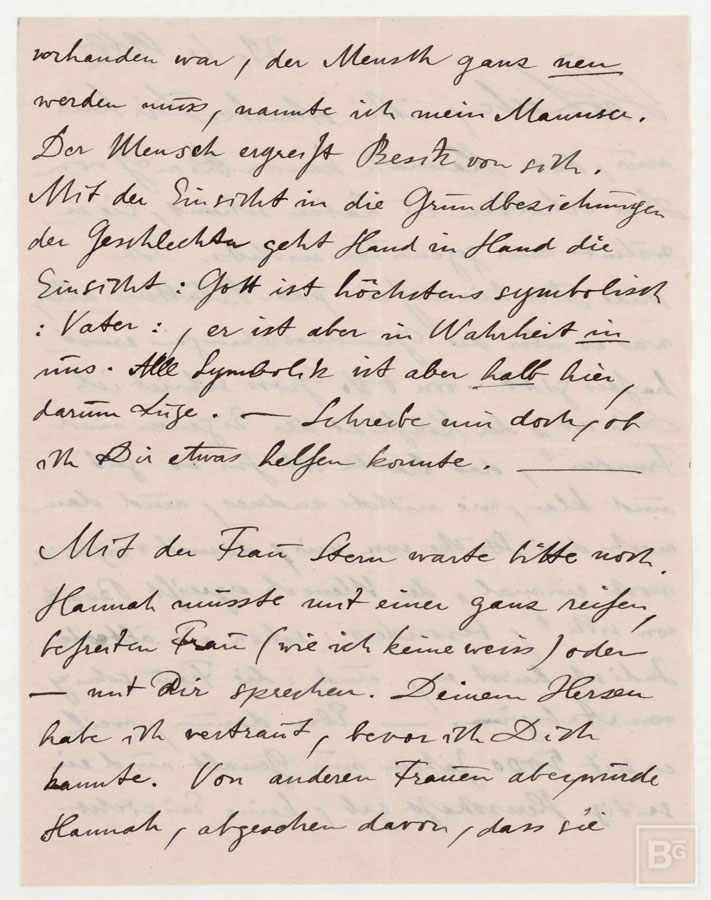 vorhanden war, der Mensch ganz neu
werden muss, nannte ich mein Mannsein.
Der Mensch ergreift Besitz von sich.
Mit der Einsicht in die Grundbeziehungen
der Geschlechter geht Hand in Hand die
Einsicht: Gott ist höchstens symbolisch
: Vater :, er ist aber in Wahrheit in
uns. Alle Symbolik ist aber halb hier,
darum Lüge. — Schreibe mir doch, ob
ich Dir etwas helfen konnte. —
Mit der Frau Stern warte bitte noch.
Hannah müsste mit einer ganz reifen,
befreiten Frau (wie ich keine weiss) oder
— mit Dir sprechen. Deinem Herzen
habe ich vertraut, bevor ich Dich
kannte. Von anderen Frauen aber würde
Hannah, abgesehen davon, dass sie
BG